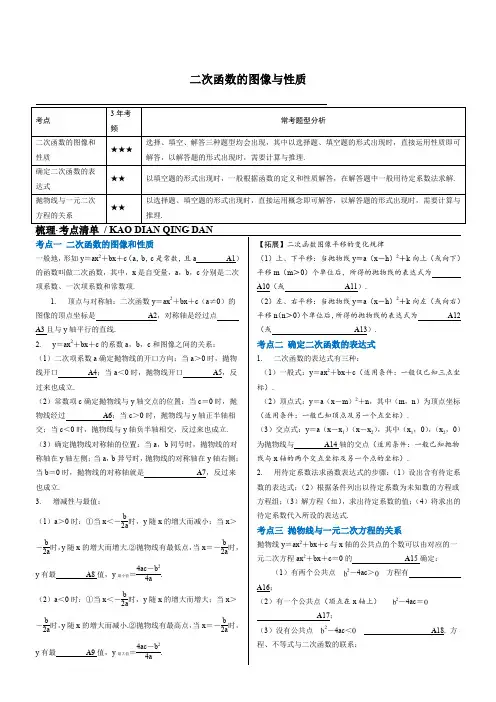 二次函数的图像与性质
考点 3年考频 常考题型分析
二次函数的图像和性质 ★★★ 选择、填空、解答三种题型均会出现,其中以选择题、填空题的形式出现时,直接运用性质即可解答,以解答题的形式出现时,需要计算与推理.
确定二次函数的表达式 ★★ 以填空题的形式出现时,一般根据函数的定义和性质解答,在解答题中一般用待定系数法求解.
抛物线与一元二次方程的关系 ★★ 以选择题、填空题的形式出现时,直接运用概念即可解答,以解答题的形式出现时,需要计算与推理.
梳理·考点清单 / KAO DIAN QING DAN
考点一 二次函数的图像和性质
一般地,形如 y=ax²+bx+c(a, b, c 是常数, 且 a A1)
的函数叫做二次函数,其中,x 是自变量,a,b,c 分别是二次
项系数、一次项系数和常数项.
1. 顶点与对称轴:二次函数 y=ax²+bx+c(a≠0)的
图像的顶点坐标是 A2,对称轴是经过点
A3 且与 y 轴平行的直线.
2. y=ax²+bx+c 的系数 a,b,c 和图像之间的关系:
(1)二次项系数 a 确定抛物线的开口方向:当 a>0 时,抛物
线开口 A4;当 a<0 时,抛物线开口 A5,反
过来也成立.
(2)常数项 c 确定抛物线与 y 轴交点的位置:当 c=0 时,抛
物线经过 A6;当 c>0 时,抛物线与 y 轴正半轴相
交;当 c<0 时,抛物线与 y 轴负半轴相交,反过来也成立.
(3)确定抛物线对称轴的位置:当 a,b 同号时,抛物线的对
称轴在 y 轴左侧;当 a,b 异号时,抛物线的对称轴在 y 轴右侧;
当 b=0 时,抛物线的对称轴就是 A7,反过来
也成立.
3. 增减性与最值:
(1)a>0 时:①当 x<-b/2a时,y 随 x 的增大而减小;当 x>
-b/2a时,y 随 x 的增大而增大.②抛物线有最低点,当 x=-b/2a时,
y 有最 A8 值,y最小值=4ac-b²/4a.
(2)a<0 时:①当 x<-b/2a时,y 随 x 的增大而增大;当 x>
-b/2a时,y 随 x 的增大而减小.②抛物线有最高点,当 x=-b/2a时,
y 有最 A9 值,y最大值=4ac-b²/4a.
【拓展】二次函数图像平移的变化规律
(1)上、下平移:当抛物线 y=a(x-h)²+k 向上(或向下)
平移 m(m>0)个单位后,所得的抛物线的表达式为
A10(或 A11).
(2)左、右平移:当抛物线 y=a(x-h)²+k 向左(或向右)
平移 n(n>0)个单位后,所得的抛物线的表达式为 A12
(或 A13).
考点二 确定二次函数的表达式
1. 二次函数的表达式有三种:
(1)一般式:y=ax²+bx+c(适用条件:一般仅已知三点坐
标).
(2)顶点式:y=a(x-m)²+n,其中(m,n)为顶点坐标
(适用条件:一般已知顶点及另一个点坐标).
(3)交点式:y=a(x-x₁)(x-x₂),其中(x₁,0)、(x₂,0)
为抛物线与 A14 轴的交点(适用条件:一般已知抛物
线与 x 轴的两个交点坐标及另一个点的坐标).
2. 用待定系数法求函数表达式的步骤:(1)设出含有待定系
数的表达式;(2)根据条件列出以待定系数为未知数的方程或
方程组;(3)解方程(组),求出待定系数的值;(4)将求出的
待定系数代入所设的表达式.
考点三 抛物线与一元二次方程的关系
抛物线 y=ax²+bx+c 与 x 轴的公共点的个数可以由对应的一
元二次方程 ax²+bx+c=0 的 A15 确定:
(1)有两个公共点 b²-4ac>0 方程有
A16;
(2)有一个公共点(顶点在 x 轴上) b²-4ac=0
A17;
(3)没有公共点 b²-4ac<0 A18. 方
程、不等式与二次函数的联系: